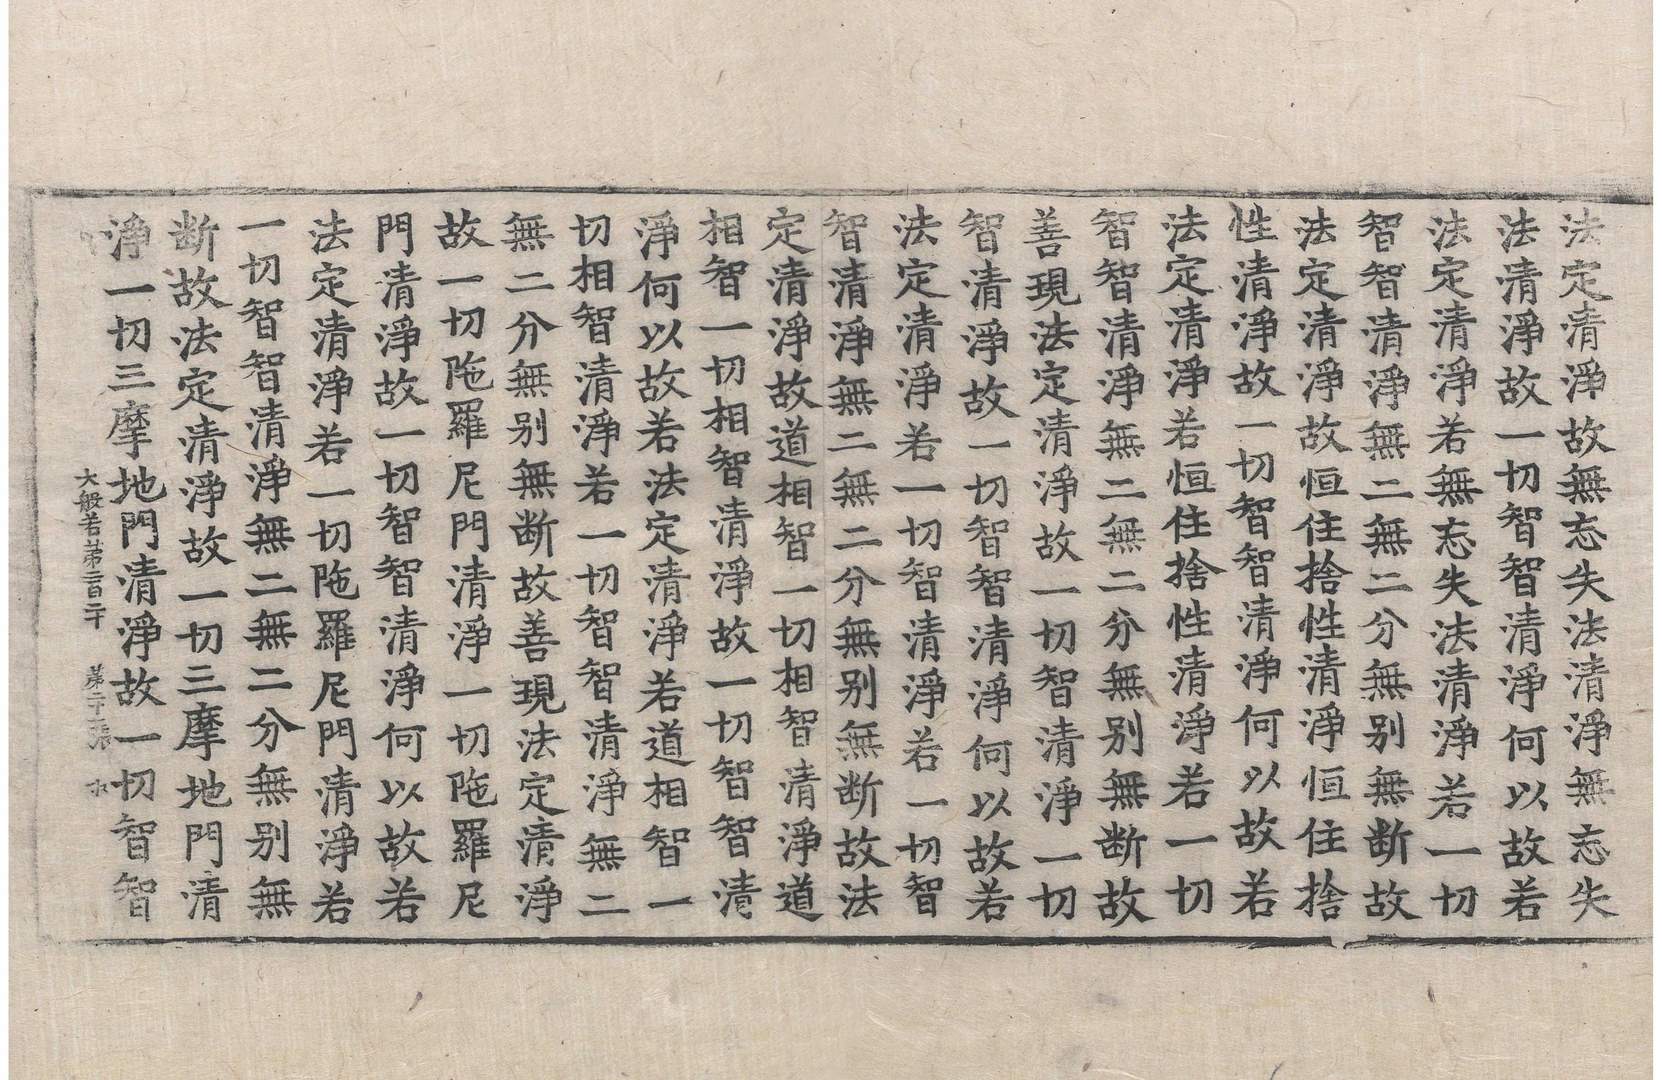 法定清淨故無忘失法清淨無忘失
法清淨故一切智智清淨何以故若
法定清淨若無忘失法清淨若一切
智智清淨無二無二分無别無断故
法定清淨故恒住捨性清淨恒住捨
性清淨故一切智智清淨何以故若
法定清淨若恒住捨性清淨若一切
智智清淨無二無二分無别無断故
善現法定清淨故一切智清淨一切
智清淨故一切智智清淨何以故若
法定清淨若一切智清淨若一切智
智清淨無二無二分無别無断故法
定清淨故道相智一切相智清淨道
相智一切相智清淨故一切智智清
淨何以故若法定清淨若道相智一
切相智清淨若一切智智清淨無二
無二分無别無断故善現法定清淨
故一切陁羅尼門清淨一切陁羅尼
門清淨故一切智智清淨何以故若
法定清淨若一切陁羅尼門清淨若
一切智智清淨無二無二分無别無
断故法定清淨故一切三摩地門清
淨一切三摩地門清淨故一切智智
大般若苐二百二十